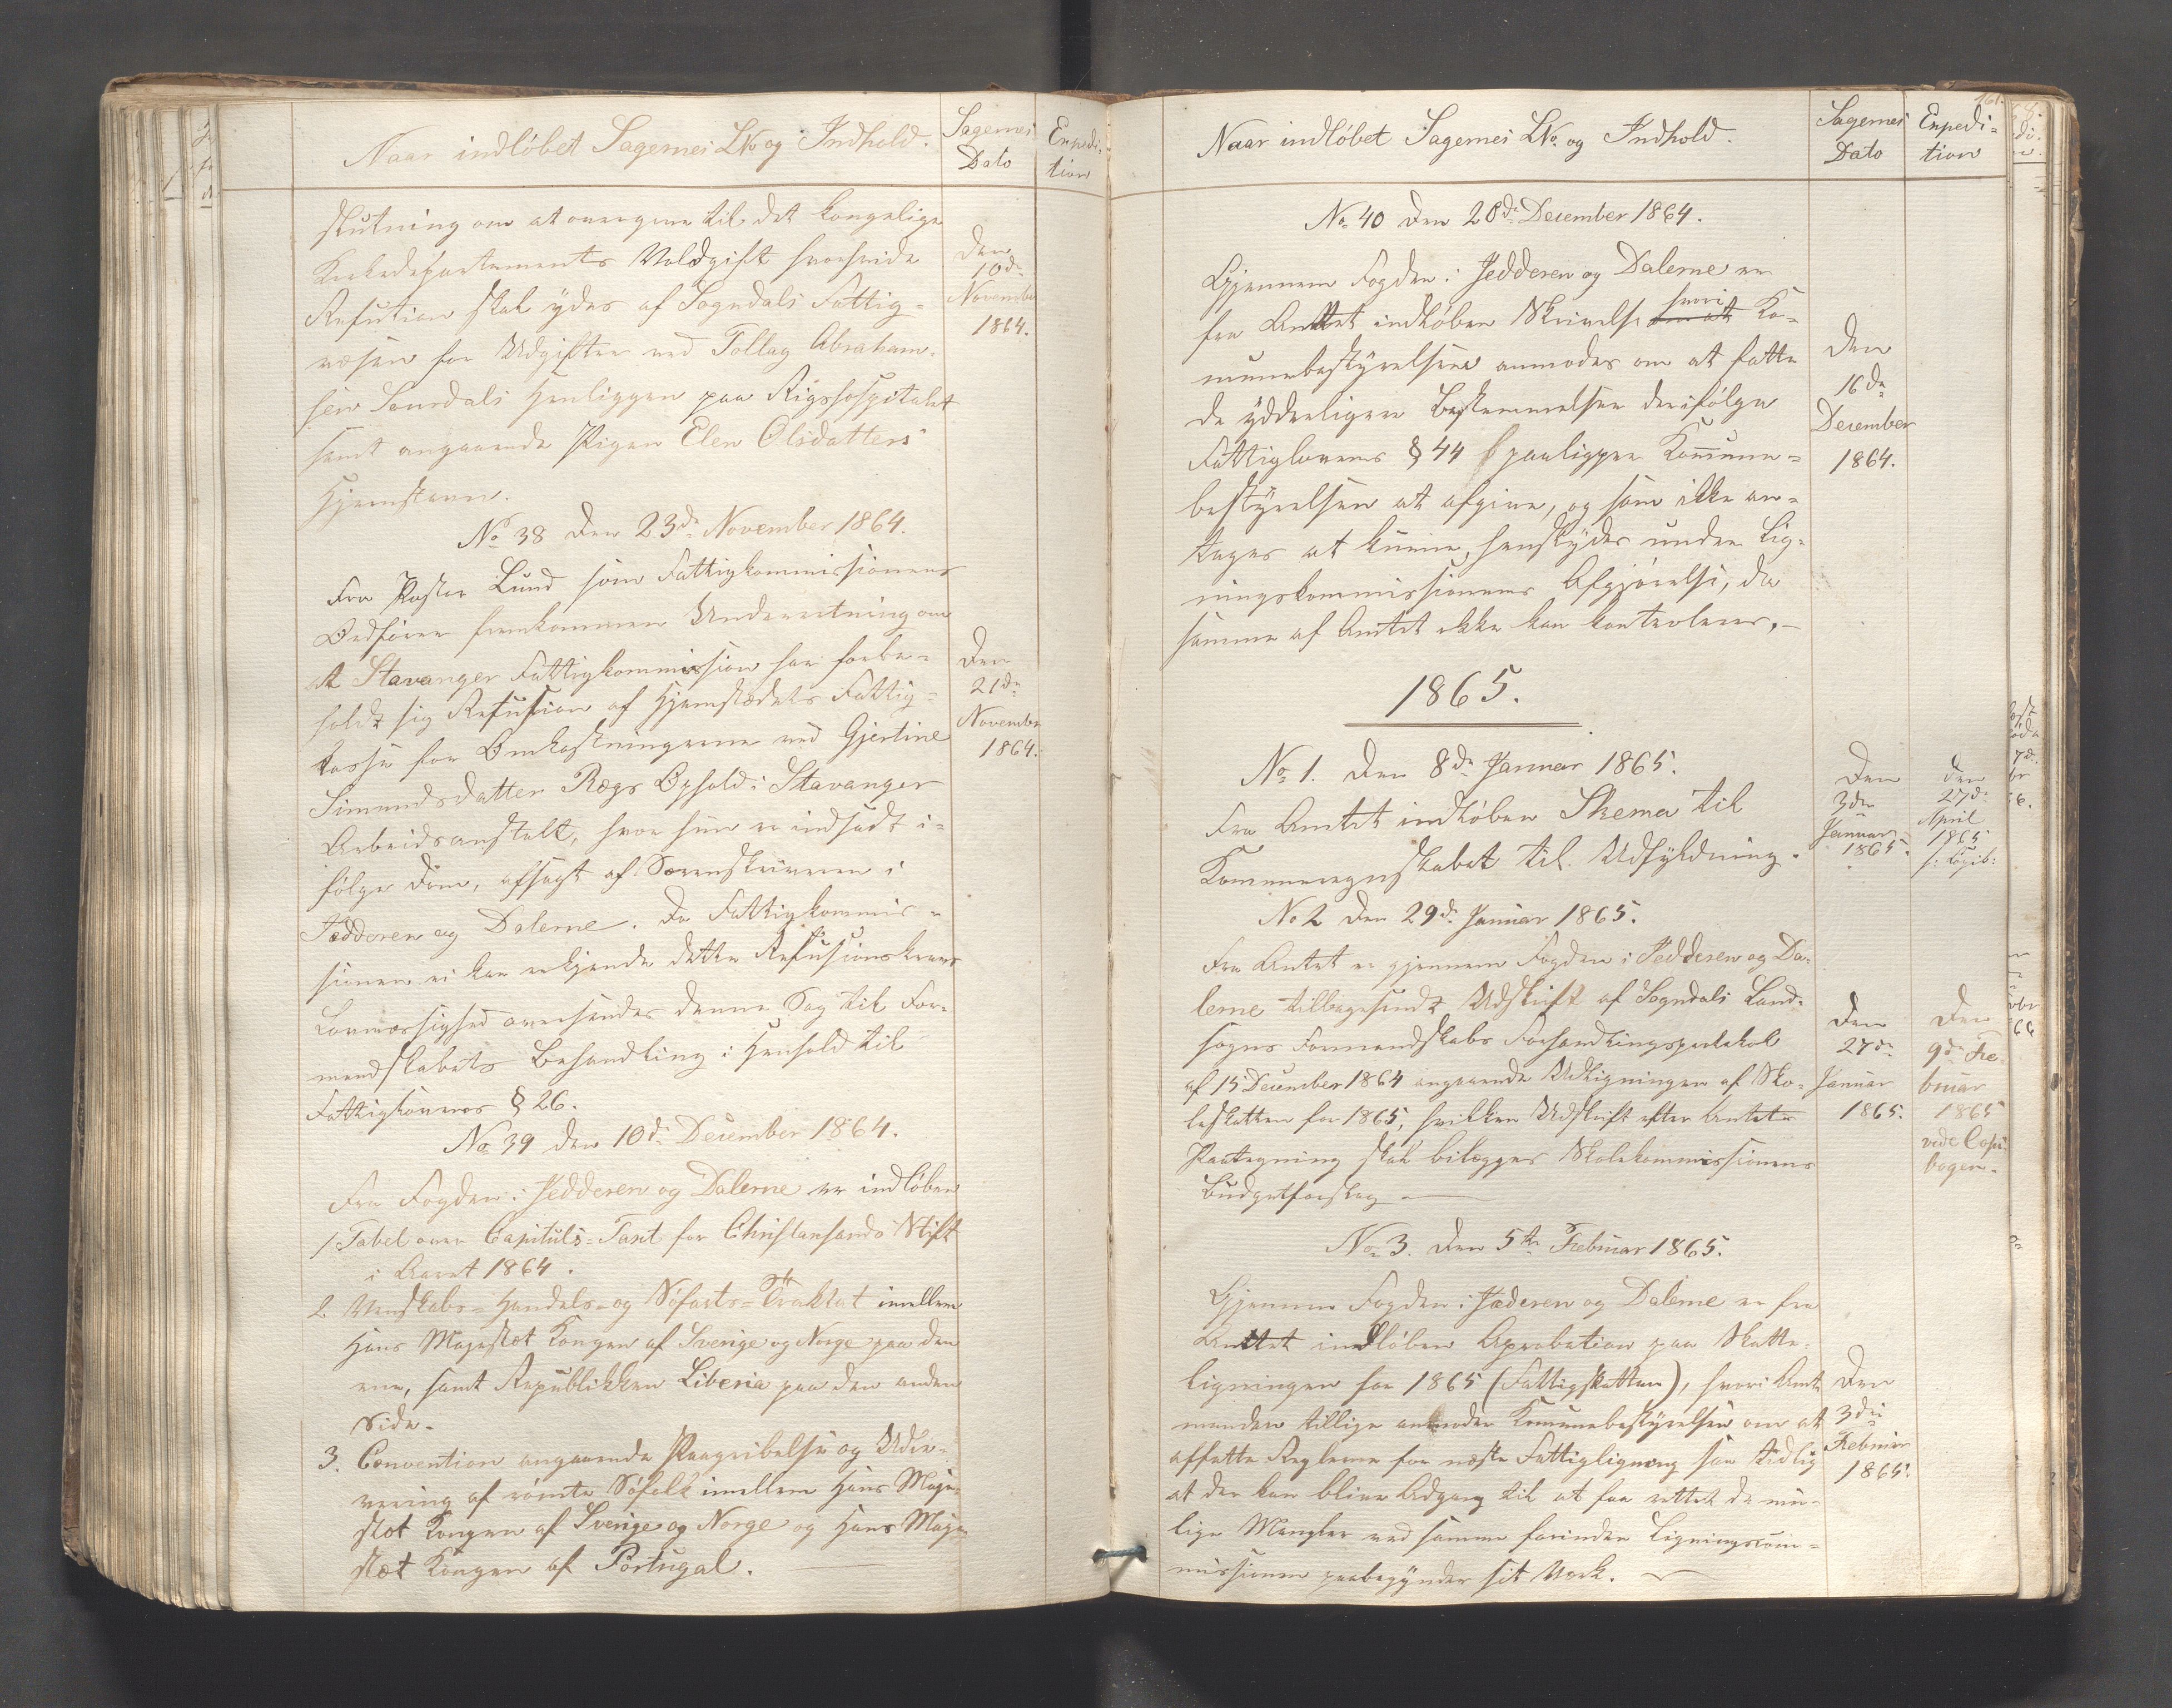 Naar indløbet Sagernes LNo og Indhold.
Sagernes Dato
Expedi-
tion
slutning om at overgive til det kongelige
Kirkedepartements Voldgift hvorvida
Refusion skal ydes af Sogndals Fattig-
væsen for Udgifter ved Tollag Abraham-
sen Lonsdals Henliggen paa Rigshospitalet
samt angaaende Pigen Elen Olsdatters
Hjemstavn.
Den
10de
November
1864.
No 38 Den 23de November 1864.
Fra Pastor Lund som Fattigkommissionens
Ordfører fremkommen Underretning om
at Stavanger Fattigkommission har forbe-
holdt sig Refusion af Hjemstedets Fattig-
kasse for Omkostningerne ved Gjertine
Simundsdatter Rægs Ophold i Stavanger
Arbeidsanstalt, hvor hun er indsadt i-
følge Dom, afsagt af Sorenskriveren i
Jædderen og Dalerne. Da Fattigkommis-
sionen ei kan erkjende dette Refusionskravs
Lovmæssighed oversendes denne Sag til For-
mandskabets Behandling i Henhold til
Fattiglovens § 26.
Den
21de
November
1864.
No 39 den 10de December 1864.
Fra Fogden i Jedderen og Dalerne er indløben
1. Tabel over Capituls-Taxt for Christiansands Stift
i Aaret 1864.
2. Venskabs- Handels- og Søfarts-Traktat imellem
Hans Majestæt Kongen af Sverige og Norge paa den
ene, samt Republikken Liberia paa den anden
Side.
3. Convention angaaende Paagribelse og Udle-
vering af rømte Søfolk imellem Hans Maje-
stæt Kongen af Sverige og Norge og Hans Maje-
stæt Kongen af Portugal.
161.
Naar indløbet Sagernes LNo. og Indhold.
Sagernes
Dato
Expedi-
tion
No 40 Den 28de December 1864.
Gjennem Fogden i Jedderen og Dalerne er
fra Amtet indløben Skrivelse om at hvori Ko-
munebestyrelsen anmodes om at fatte
de ydderligere Bestemmelser der ifølge
Fattiglovens § 44 paaligger Kommune-
bestyrelsen at afgive, og som ikke an-
tages at kunne henskydes under Lig-
ningskommissionens Afgjørelse, da
samme af Amtet ikke kan kontroleres.-
Den
16de
December
1864.
1865.
No 1. Den 8de Januar 1865.
Fra Amtet indløben Skema til
Kommuneregnskabet til Udfyldning.
Den
3die
Januar
1865.
den
27de
April
1865
No 2 Den 29de Januar 1865.
Fra Amtet er gjennem Fogden i Jedderen og Da-
lerne tilbagesendt Udskrift af Sogndals Land-
sogns Formandskabs Forhandlingsprotokol
af 15 December 1864 angaaende Udligningen af Sko-
leskatten for 1865, hvilken Udskrift efter Amtets
Paategning skal bilægges Skolekommissionens
Budgetforslag.
Den
27de
Januar
1865.
Den
9de Fe-
bruar
1865
vide Copi-
bogen.
No 3. Den 5te Februar 1865.
Gjennem Fogden i Jæderen og Dalerne er fra
Amtet indløben Aprobation paa Skatte-
ligningen for 1865 (Fattigskatten), hvori Amt-
manden tillige anmoder Komunebestyrelsen om at
affatte Reglerne for næste Fattigligning saa tidlig
at der kan blive Adgang til at faa rettet de mu-
lige Mangler ved samme forinden Ligningscom-
missionen paabegynder sit Værk.
Den
3die
Februar
1865.